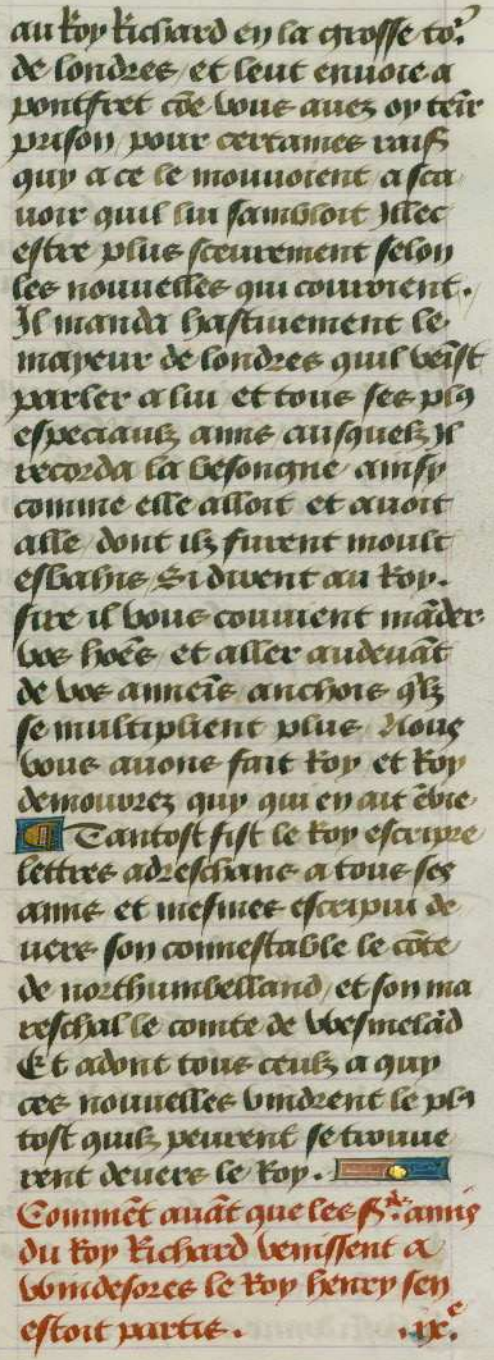 au Roy Richard en la grosse to.ʳ
de londres / et leut enuoie a
pontfret cōe vous auez oy tenir
prison / pour certaines rais
quy a ce le mouuoient / a sca
uoir quil lui sambloit Illec
estre plus sceurement selon
les nouuelles qui couroient.
Il manda hastiuement le
mayeur de londres quil veist
parler a lui et tous ses plꝰ
especiaulz amis / ausquelz Il
recorda la besongne / ainsy
comme elle alloit et auoit
alle / dont ilz furent moult
esbahis / Si dirent au Roy.
sire il vous couuient māder
vos hoēs / et aller audeuāt
de vos annemis / anchois qlz
se multiplient plus / Nous
vous auons fait Roy et Roy
demourrez quy qui en ait ēvie
Tantost fist le Roy escripre
lettres adreschans a tous ses
amis et mesmes escripui de
uers son connestable le cōte
de northumbelland / et son ma
reschal le comte de Wesmelād
Et adont tous ceulz a quy
ces nouuelles vindrent le plꝰ
tost quilz peurent se trouue
rent deuers le Roy.
Commēt auāt que les Sʳˢ. amis
du Roy Richard venissent a
windesores le Roy henry sen
estoit partis. .ix.ᵉ